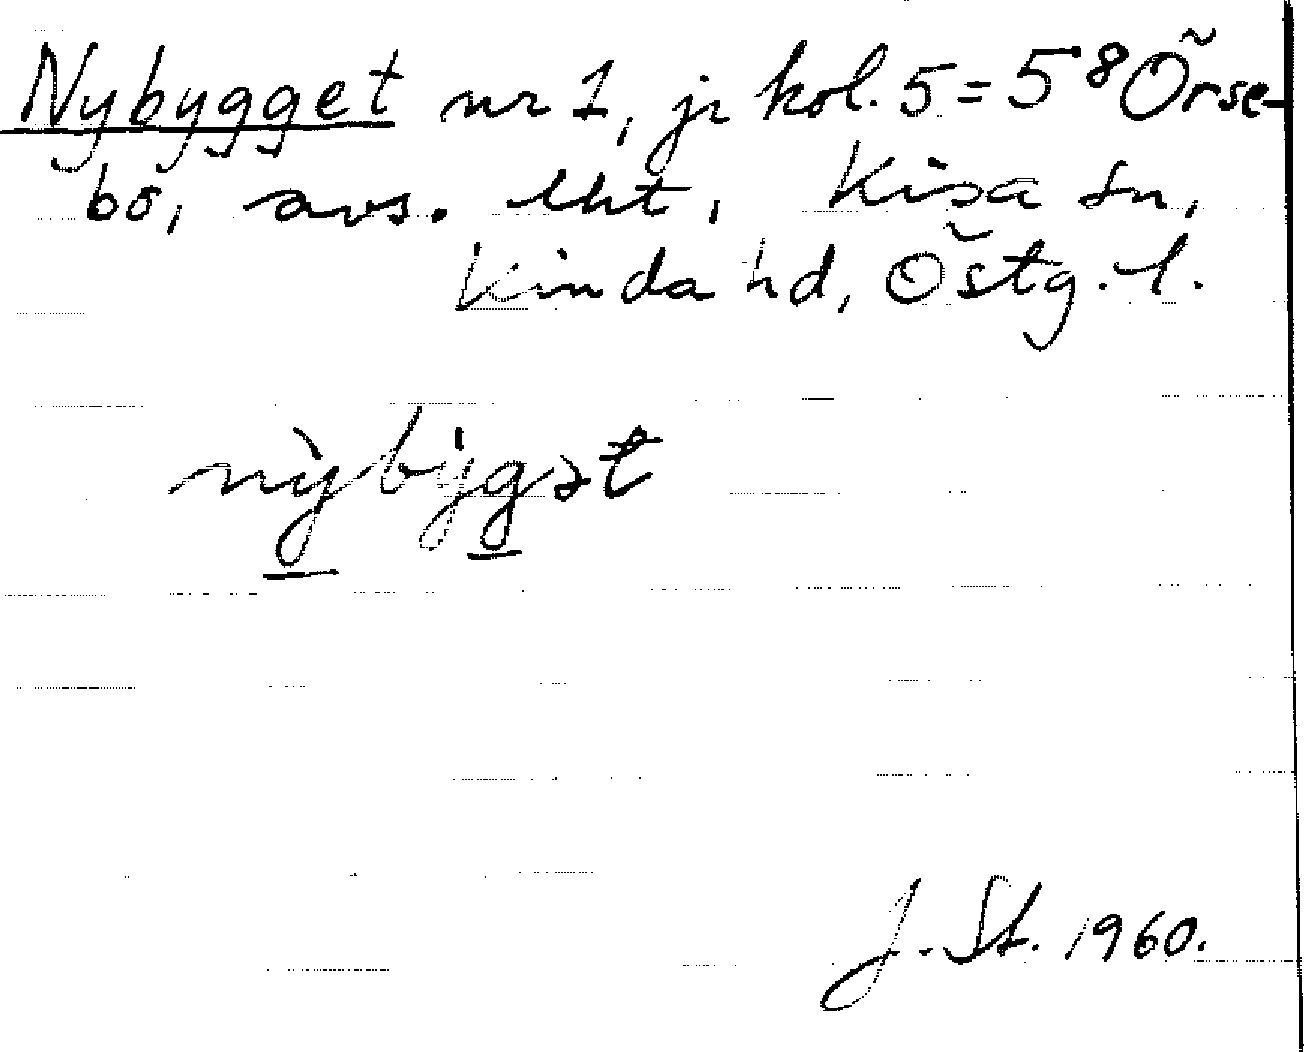 Nybygget nr 1, jr kol. 5 = 5⁸ Örse-
bo, avs. lht, Kisa sn,
Kinda hd, Östg. l.
nỳbýgət
J. St. 1960.